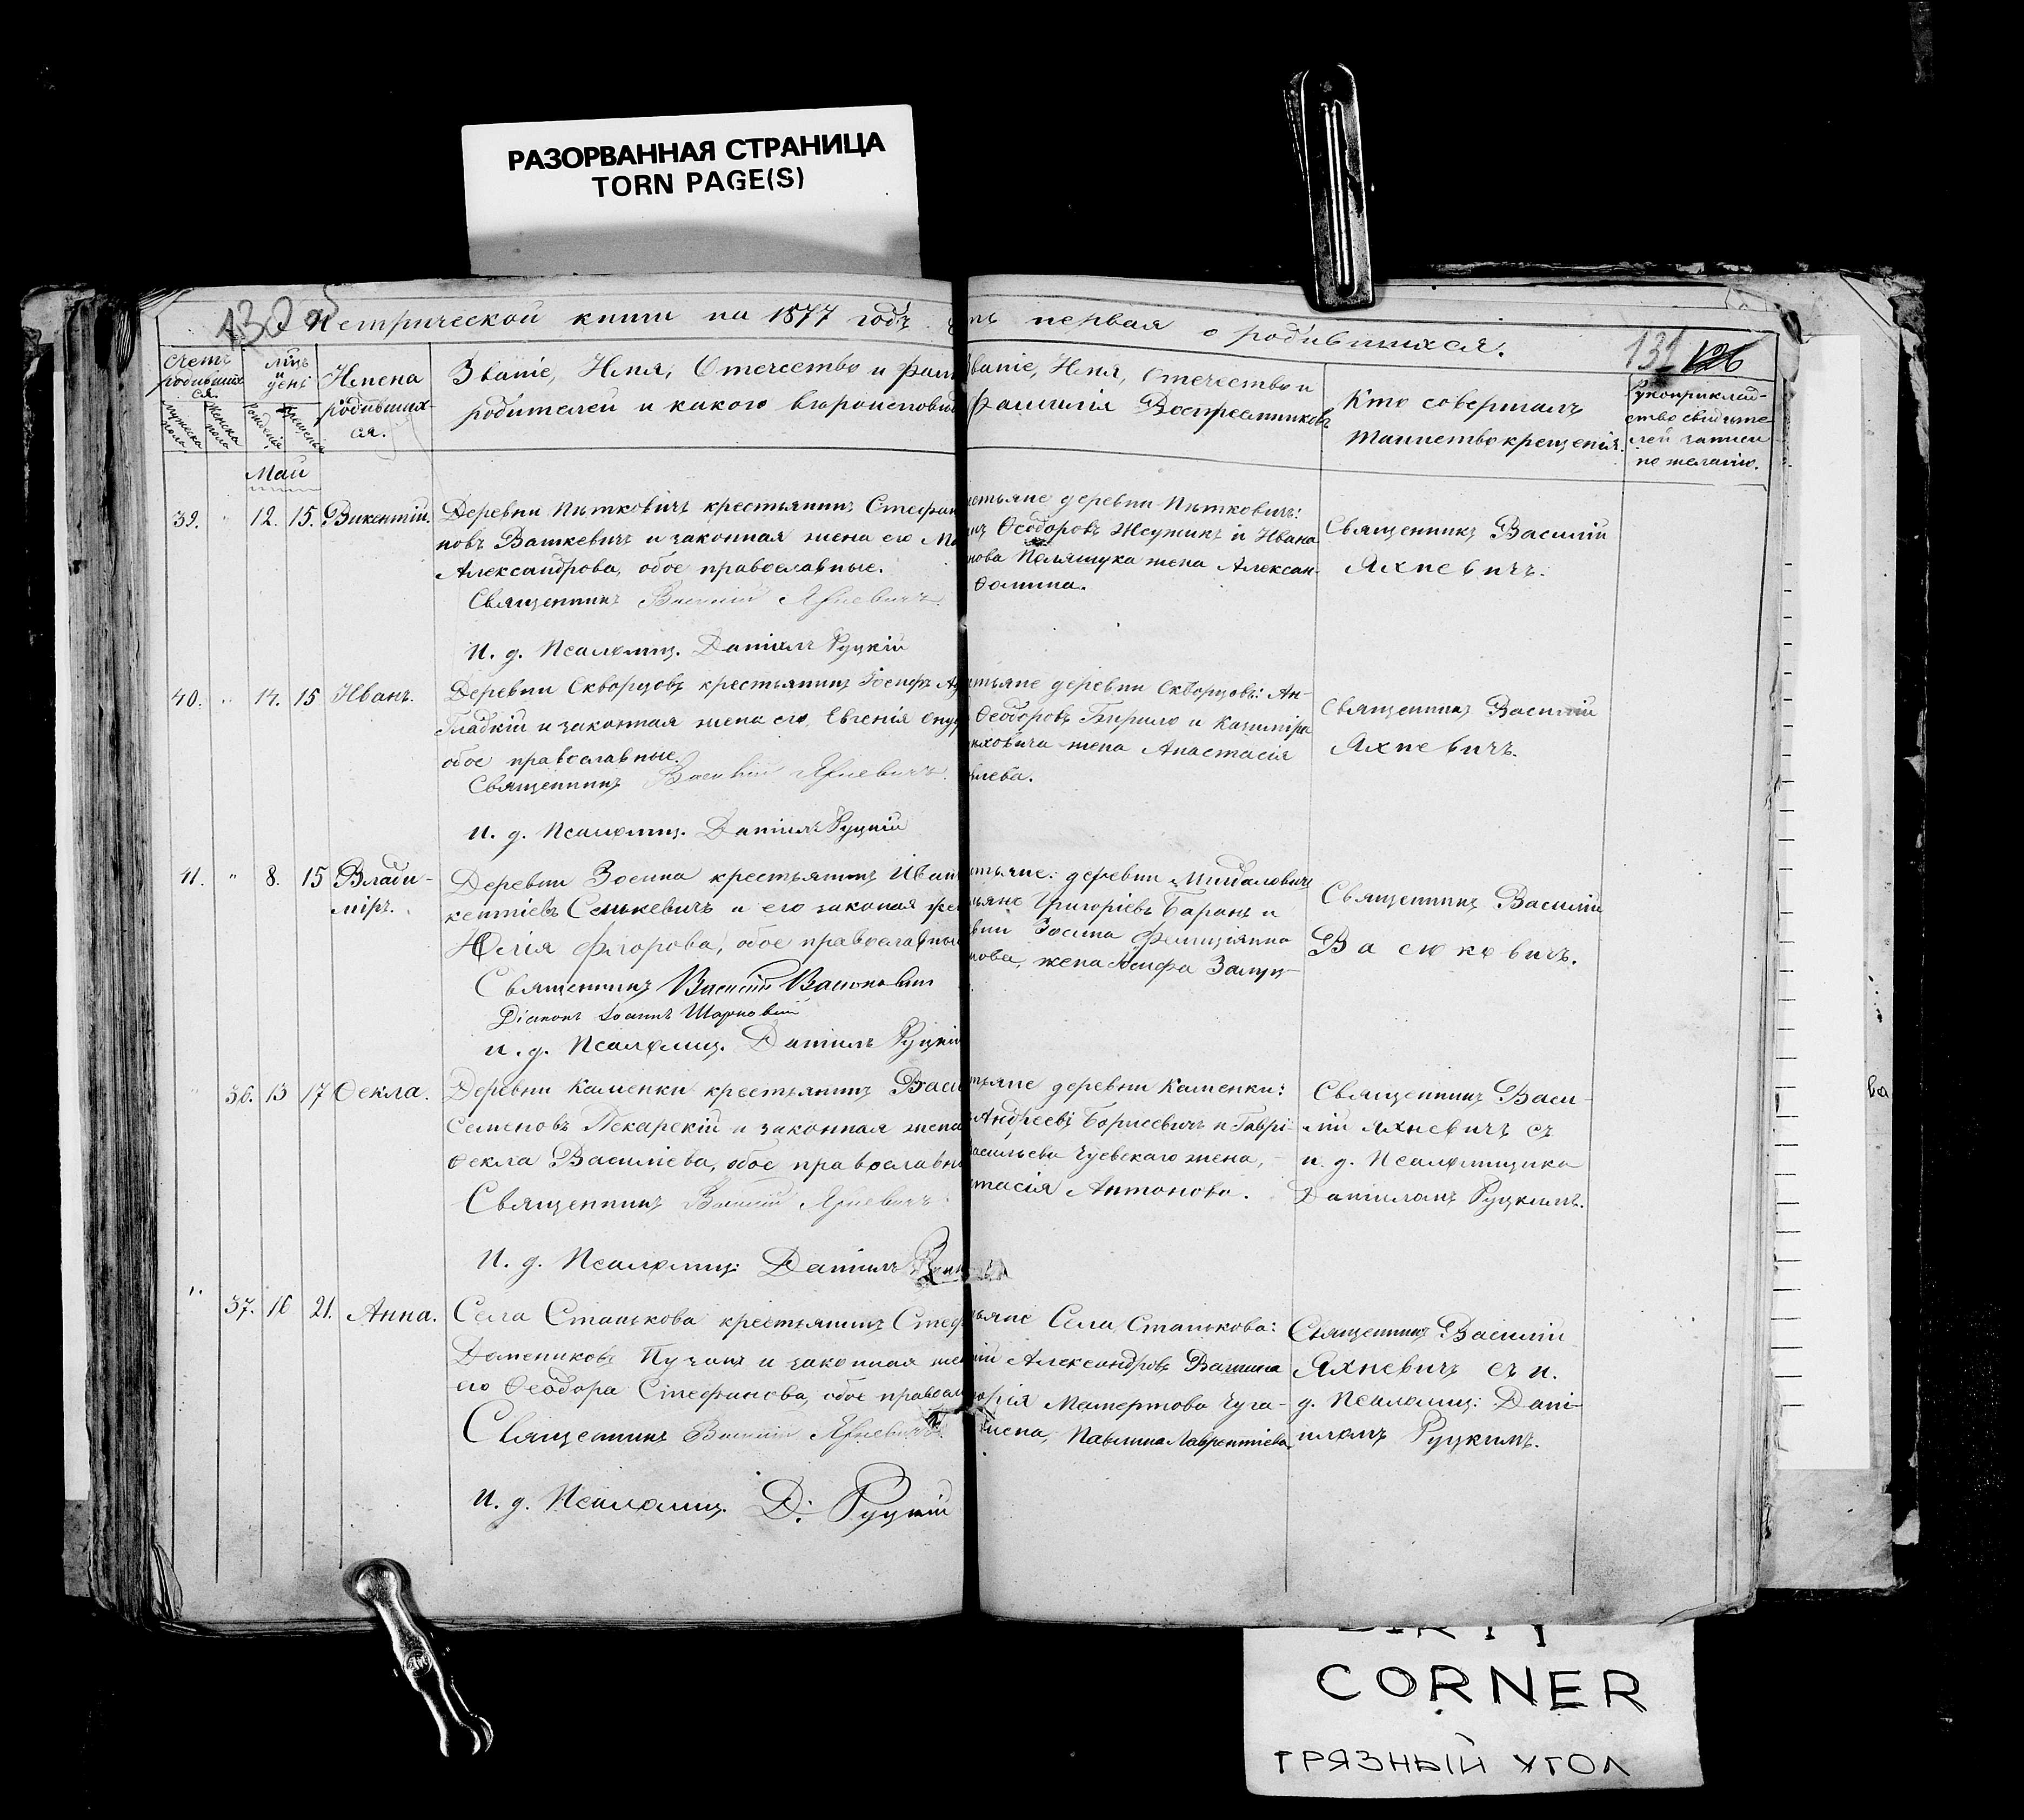 РАЗОРВАННАЯ СТРАНИЦА
TORN PAGE(S)
130
Метрической книги на 1877 годъ
первая о родившихся.
131 126
Счетъ родившихся.
Мужеска пола
Женска пола
мцъ и день
Рожденія
Крещенія
Имена родившихся.
Званіе, Имя, Отечество и фам
родителей и какого вѣроисповѣд
Званіе, Имя, Отечество и
фамилія Воспреемниковъ
Кто совершалъ
таинство крещенія.
Рукоприклад-
ство свидѣте-
лей записи
по желанію.
Май
39. " 12. 15. Викентій.
Деревни Пятковичъ крестьянинъ Стефан
новъ Вашкевичъ и законная жена его Ма
Александрова, обое православные.
Священникъ Василій Яхневичъ.
И. д. Псаломщ. Даніилъ Руцкій
стьяне деревни Пятковичъ:
Ѳеодоровъ и Ивана
нова Полящука жена Алексан-
Ѳомина.
Священникъ Василій
Яхневичъ.
40. " 14. 15 Иванъ.
Деревни Скворцовъ крестьянинъ Іосифъ А
Гладкій и законная жена его, Евгенія Ону
обое православные.
Священникъ Василій Яхневичъ.
и. д. Псаломщ. Даніилъ Руцкій
стьяне деревни Скворцовъ: Ан-
Ѳеодоровъ Бирило и Казиміра
жена Анастасія
влева.
Священникъ Василій
Яхневичъ.
41. " 8. 15 Влади-
міръ.
Деревни Зосина крестьянинъ Иван
кентіевъ Сенькевичъ и его законая жен
Юлія обое православны
Священникъ Василій Васюковичъ
Діаконъ Іоаннъ
и. д. Псаломщ. Даніилъ Руцкій
стьяне: деревни
Григоріевъ Баранъ и
вни Зосина
нова, жена
Священникъ Василій
Васюковичъ.
36. 13 17 Ѳекла.
Деревни Каменки крестьянинъ Васи
Семеновъ Пекарскій и законная жена
Ѳекла Василіева, обое православн
Священникъ Василій Яхневичъ.
И. д. Псаломщ: Даніилъ
стьяне деревни Каменки:
Андреевъ Борисевичъ и Гаврі-
асильева Чуевскаго жена, -
тасія Антонова.
Священникъ Васи-
лій Яхневичъ съ
и. д. Псаломщика
Даніиломъ Руцкимъ.
" 37. 16 21. Анна.
Села Станькова крестьянинъ Стеф
Домениковъ и законная же
его Ѳеодора Стефанова, обое правосл
Священникъ Василій Яхневичъ
И. д. Псаломщ. Д: Руцкій
тьяне Села Станькова:
Александровъ
Чуга-
жена, Павлина Лаврентіева
Священникъ Василій
Яхневичъ съ и.
д. Псаломщ: Дані-
иломъ Руцкимъ.
ва
DIRTY
CORNER
ГРЯЗНЫЙ УГОЛ